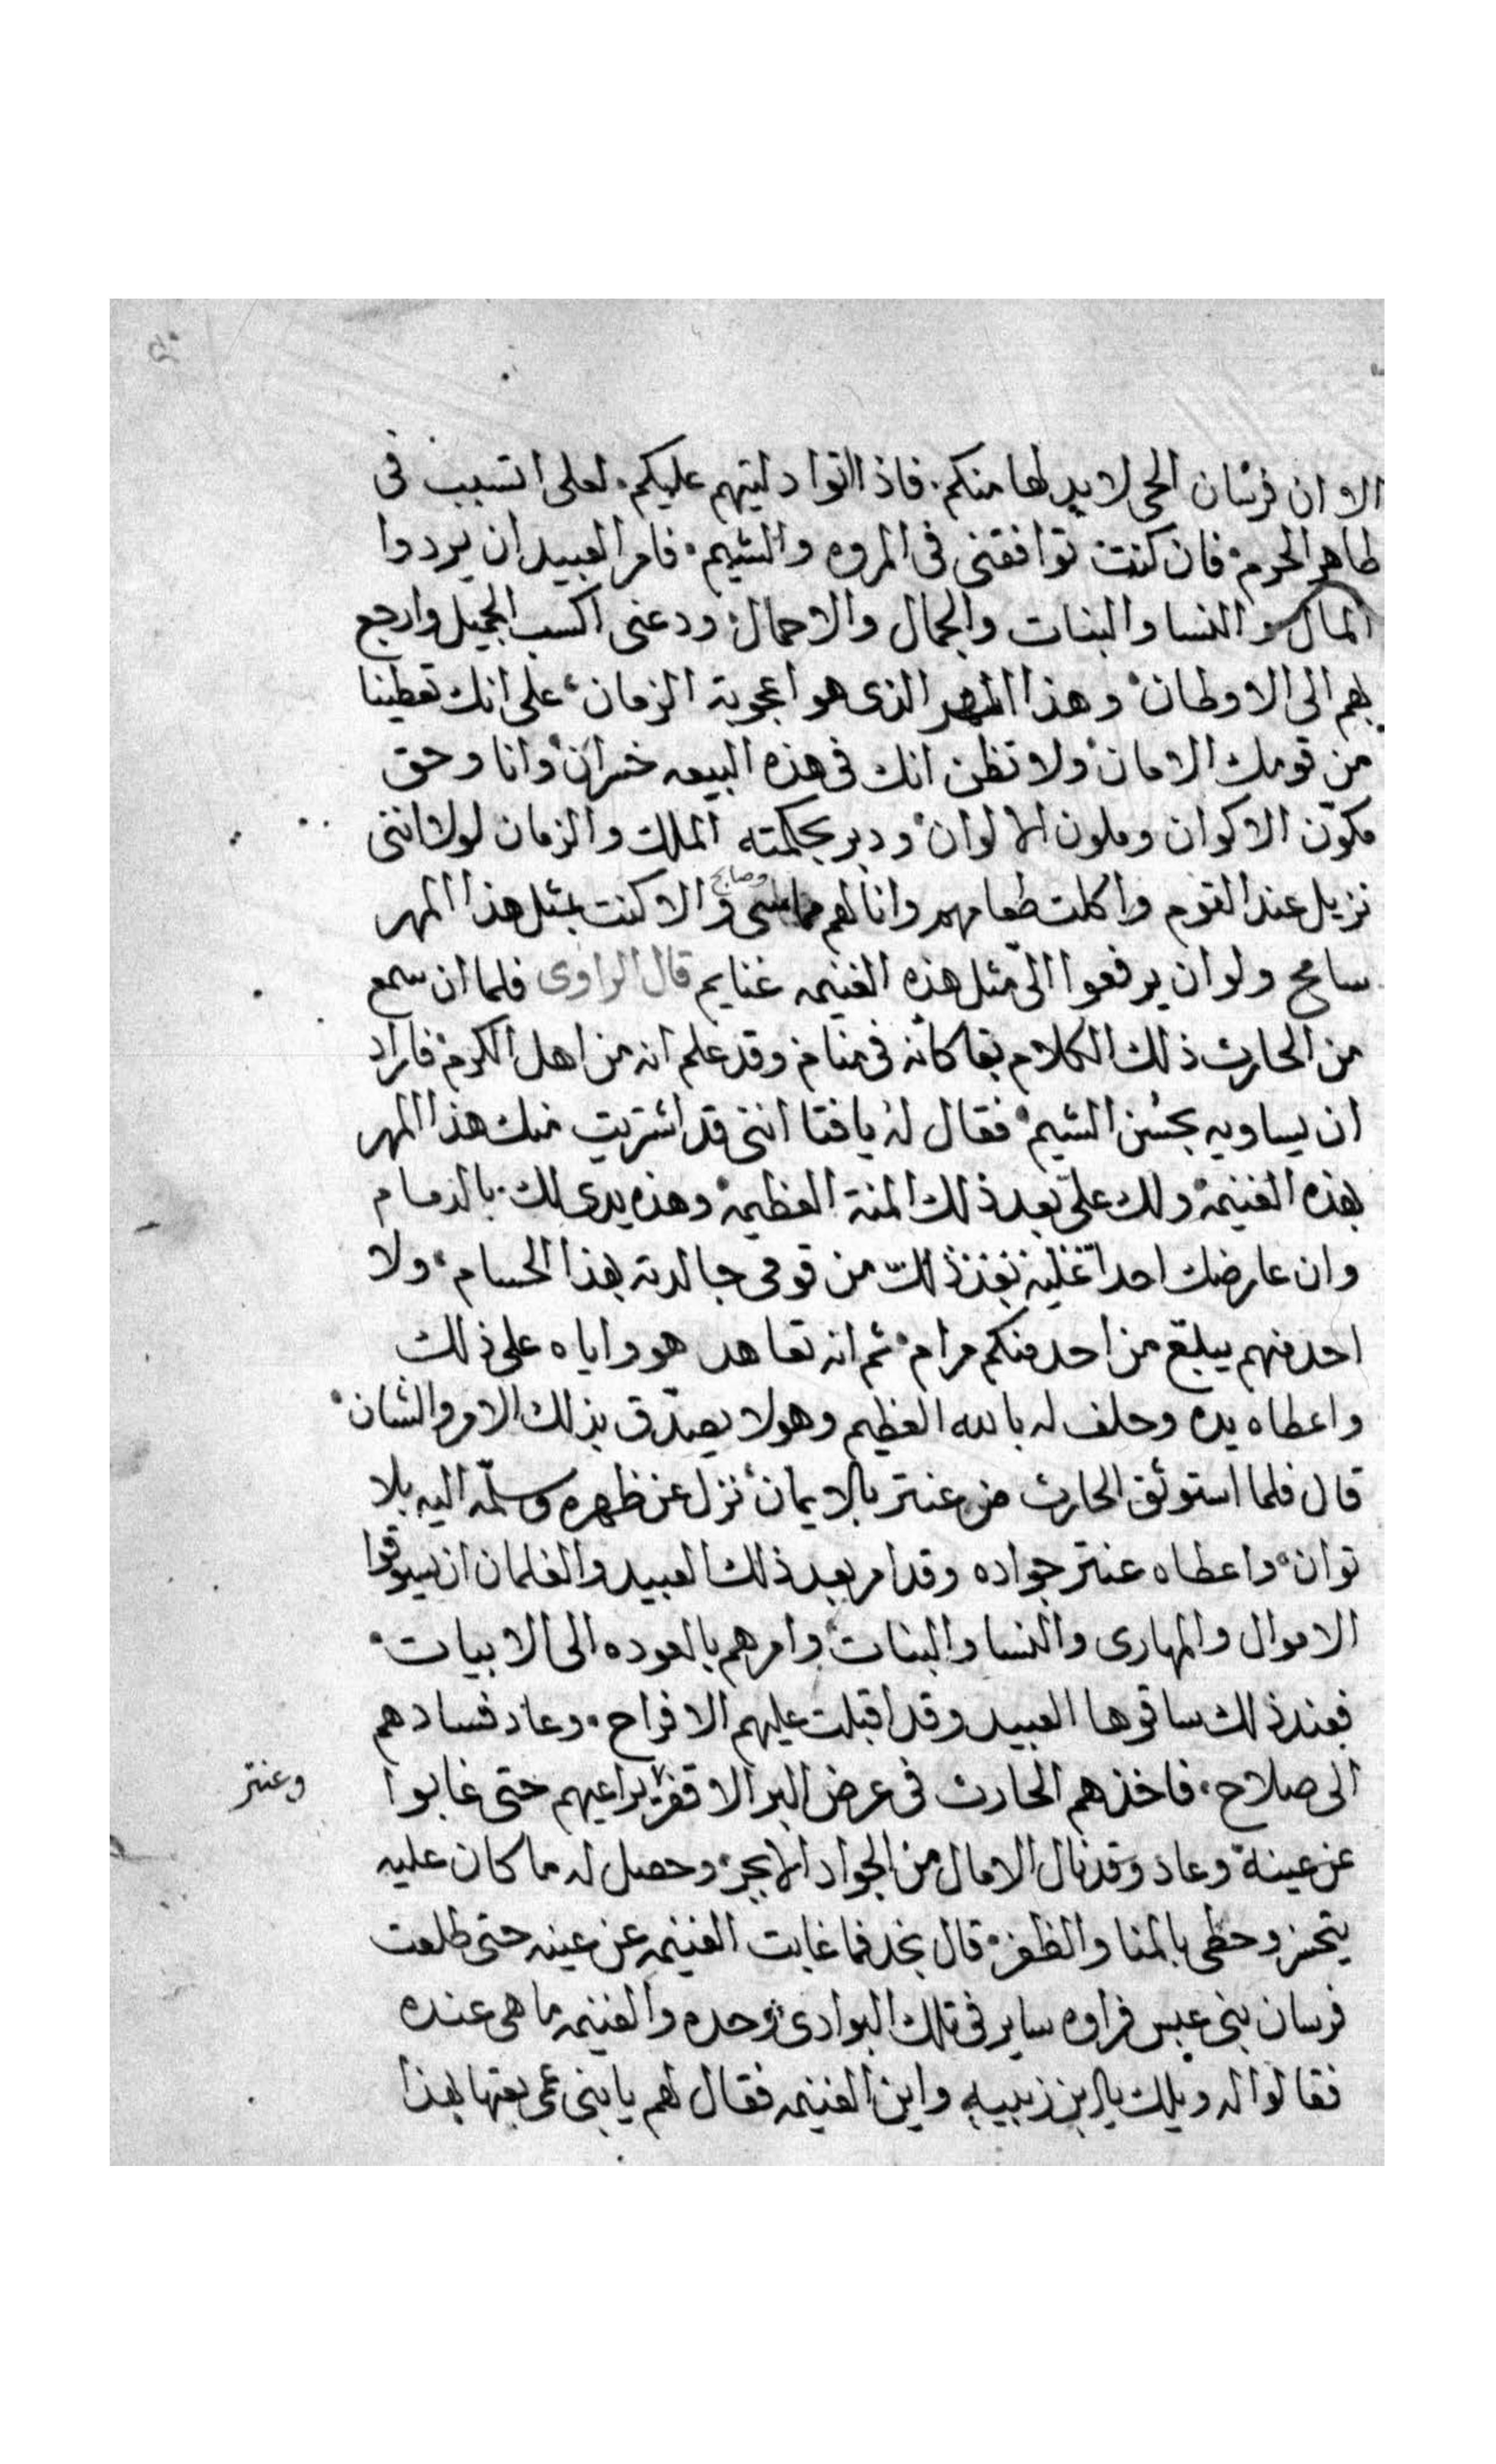 الا وان فرسان الحى لابد لها منكم. فاذا اتوا دليتهم عليكم. لعلى اتسبب فى
طاهر الحرم. فان كنت توافقنى فى المروه والشيم. فامر العبيد ان يردوا
المال والنسا والبنات والجمال والاحمال. ودعنى اكسب الجميل وارجع
بهم الى الاوطان. وهذا المهر الذى هو اعجوبة الزمان. على انك تعطينا
من قومك الامان. ولا تظن انك فى هذه البيعه خسران. وانا وحق
مكوّن الاكوان وملون الالوان. ودبر بحكمته الملك والزمان لولا اننى
نزيل عند القوم واكلت طعامهم وانا لهم وصاحب والا كنت بمثل هذا المهر
سامح ولو ان يرفعوا الىّ مثل هذه الغنيمه غنايم قال الراوى فلما ان سمع
من الحارث ذلك الكلام بقا كانه فى منام وقد علم انه من اهل الكرم. فاراد
ان يساويه بحُسن الشيم. فقال له يا فتا اننى قد اشتريت منك هذا المهر
بهذه الغنيمه. ولك علىّ بعد ذلك المنة العظيمه. وهذه يدى لك. بالذمام
وان عارضك احدا من قومى جالدته بهذا الحسام. ولا
احد منهم يبلغ من احد منكم مرام. ثم انه تعاهد هو واياه على ذلك
واعطاه يده وحلف له بالله العظيم وهو لا يصدّق بذلك الامر والشان.
قال فلما استوثق الحارث من عنتر بالايمان. نزل عن ظهره وسلّمه اليه بلا
توان. واعطاه عنتر جواده وقد امر بعد ذلك العبيد والغلمان ان يسوقوا
الاموال والمهارى والنسا والبنات. وامرهم بالعوده الى الابيات.
فعند ذلك ساقوها العبيد وقد اقبلت عليهم الافراح. وعاد فسادهم
الى صلاح. فاخذهم الحارث فى عرض البر الاقفر يراعيهم حتى غابوا
وعنتر
عن عينه وعاد وقد نال الامال من الجواد الابجر. وحصل له ما كان عليه
يتحسر وحظى بالمنا والظفر. قال نجد فما غابت الغنيمه عن عينه حتى طلعت
فرسان بنى عبس فراوه ساير فى تلك البوادى وحده والغنيمه ما هى عنده
فقالوا له ويلك يا ابن زبيبه واين الغنيمه فقال لهم يا بنى عمى بعتها بهذا